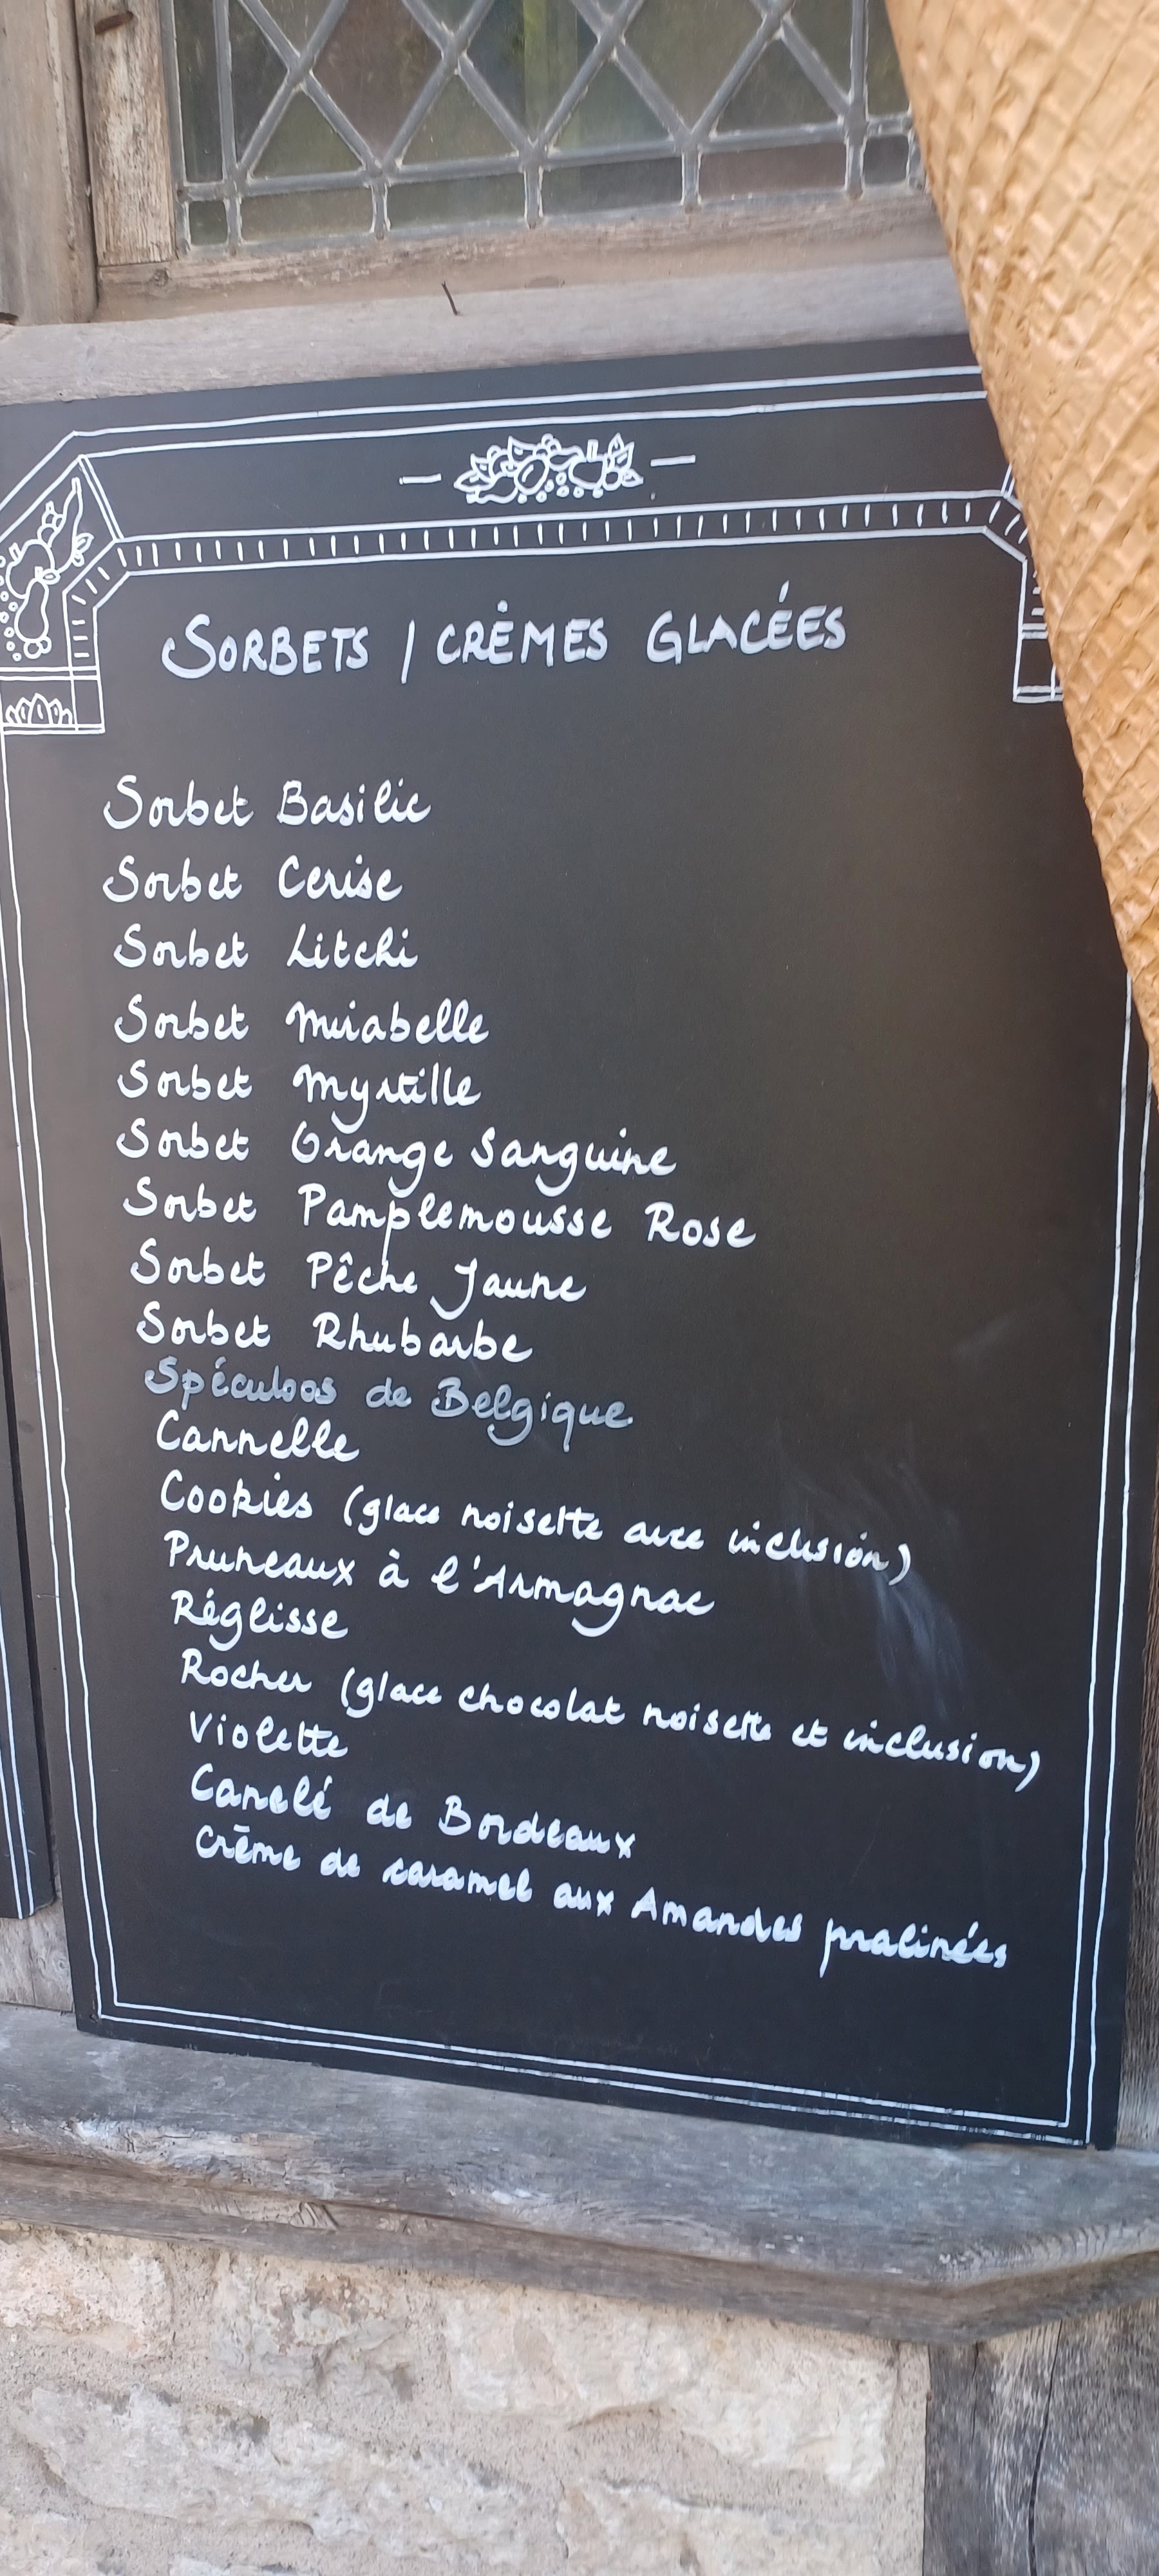 SORBETS / CRÈMES GLACÉES
Sorbet Basilic
Sorbet Cerise
Sorbet Litchi
Sorbet Mirabelle
Sorbet Myrtille
Sorbet Orange Sanguine
Sorbet Pamplemousse Rose
Sorbet Pêche Jaune
Sorbet Rhubarbe
Spéculoos de Belgique
Cannelle
Cookies (glace noisette avec inclusion)
Pruneaux à l'Armagnac
Réglisse
Rocher (glace chocolat noisette et inclusion)
Violette
Canelé de Bordeaux
Crème de caramel aux Amandes pralinées